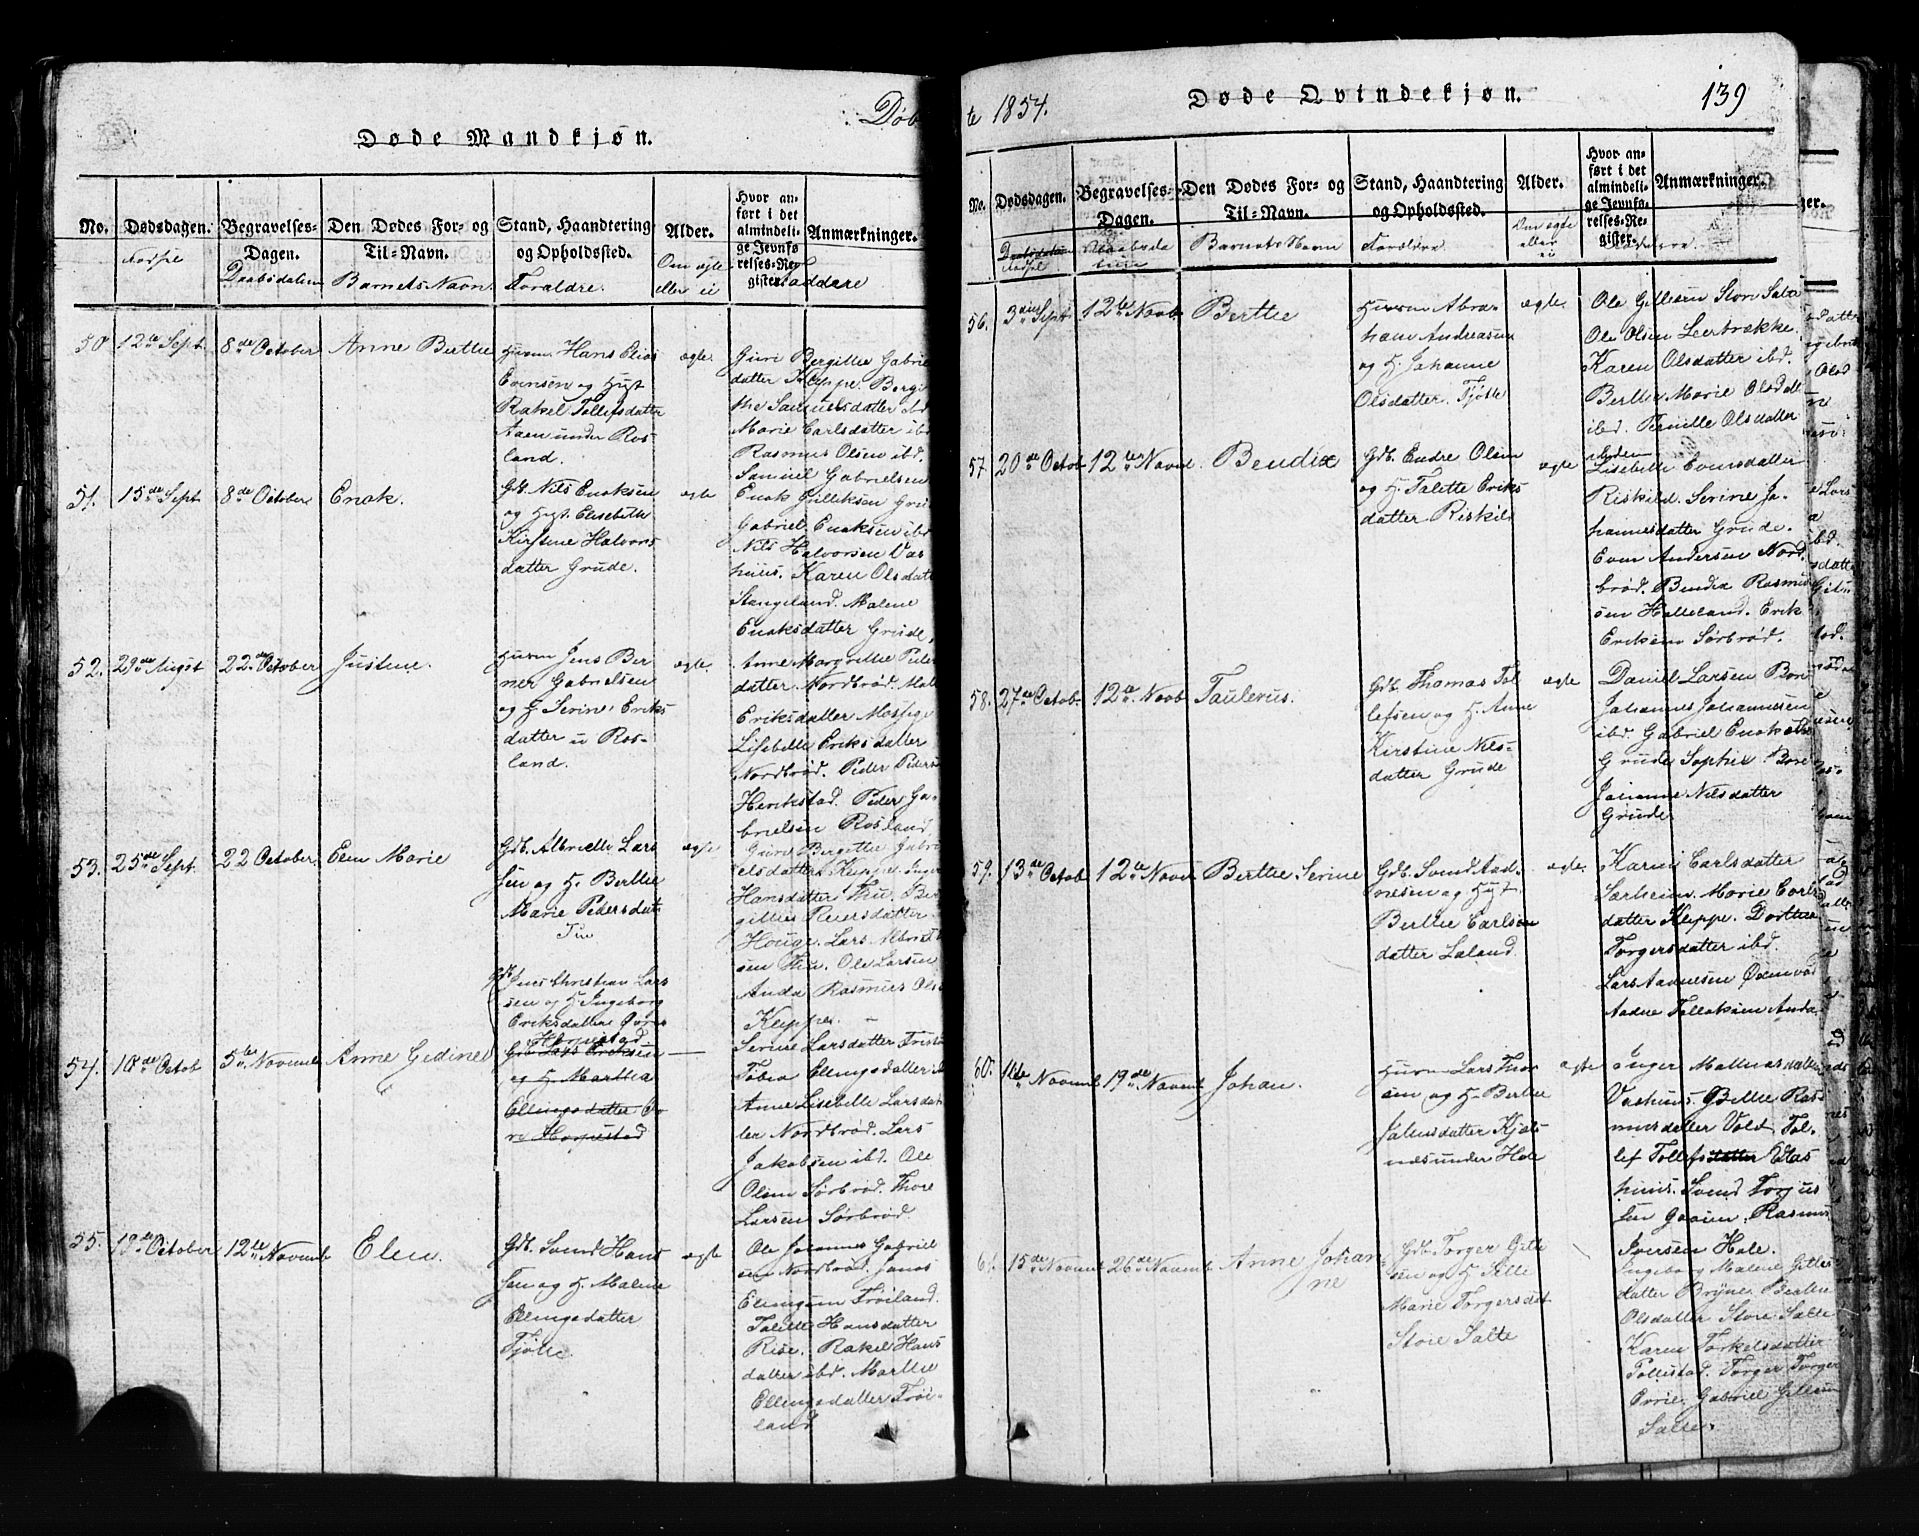 Døb
Døde Mandkjøn.
No.
Dødsdagen.
Begravelses-
Dagen.
Den Dødes For- og
Til-Navn.
Stand, Haandtering
og Opholdssted.
Alder.
Hvor an-
ført i det
almindeli-
ge Jevnfø-
relses-Re-
gister.
Anmærkninger.
Daabsdatum
Barnets Navn
Foraldre.
Om ægte
eller ei
Faddere
50
12te Sept.
8de October
Anne Berthe
Huusm. Hans Elias
Evensen og Hust
Rakel Tollefsdatter
Aaen under Ros-
land.
ægte.
Guri Bergitte Gabriel
datter Kleppe. Bergi
the Samuelsdatter ibd
Marie Carlsdatter ibd
Rasmus Olsen ibd.
Samuel Gabrielsen
51.
15de Sept
8de October
Enok.
Gdb. Nils Enoksen
og Hust. Elisebeth
Kirstine Halvors
datter Grude.
ægte
Enok Gilliksen Grude
Gabriel Enoksen ibd
Nils Halvorsen Vas
huus. Karen Olsdatt
Stangeland. Malene
Enoksdatter Grude.
52.
29de August
22de October
Justine.
Huusm Jens Ber
ner Gabrielsen
og H Serine Eriks
datter u Ros-
land.
ægte.
Anne Margrethe Peder
datter Nordbrød. Mall
Eriksdatter
Lisebelle Eriksdatter
Nordbrød. Peder Peders
Henrikstad. Peder Ga-
brielsen Rosland.
53.
25de Sept.
22 October
Elen Marie
Gdb. Albrette Lars
sen og H. Berthe
Marie Pedersdat
Tiu
ægte
Guri Bergitte Gabri
elsdatter Kleppe. Inger
Hansdatter Thu. Ber
gitte Reiersdatter
Houge. Lars Albrets
sen Thu. Ole Larsen
Anda Rasmus Ols
Kleppe.
54.
18de Octob
5te Novemb
Anne Gedine
Gdb. Jens Christian Lars
sen og H Ingeborg
Eriksdatter Øvre
Horpestad
Gdb Lars Eriksen
og H. Marthea
Ellingsdatter Øv
re Horpestad
Serine Larsdatter
Tobia Ellingsdatter
Anne Lisebelle Larsdat
ter Nordbrød. Lars
Jakobsen ibd. Ole
Olsen Sørbrød. Thore
Larsen Sørbrød.
55.
19de October
12te Novemb
Elen.
Gdb. Svend Hans
sen og H. Malene
Ellingsdatter
Tjøtte.
ægte
Ole Johannes Gabriel
sen Nordbrød. Jonas
Ellingsen Frøiland.
Talette Hansdatter
Rise. Rakel Hans
datter ibd. Marthe
Ellingsdatter Frøi-
land
te 1854.
Døde Qvindekjøn.
139
No.
Dødsdagen.
Begravelses-
Dagen.
Den Dødes For- og
Til-Navn.
Stand, Haandtering
og Opholdssted.
Alder.
Hvor an-
ført i det
almindeli-
ge Jevnfø-
relses-Re-
gister.
Anmærkninger.
Barnets Navn
Foraldre
Om ægte
eller
ei
56.
3die Sept
12te Novb
Berthe
Huusm Abra-
ham Andreasen
og H. Johanne
Olsdatter. Tjøtte
ægte
Ole Gittesen Store Salte
Ole Olsen Leerbrække
Karen Olsdatter ibd.
Berthe Marie Olsdatt
ibd. Pernille Olsdatter
ibidem
57.
20de Octob
12te Novmb
Bendix
Gdb. Endre Olsen
og H Talette Eriks
datter Riskild
ægte
Lisebelle Evensdatter
Riskild. Serine Jo-
hannesdatter Grude.
Even Andersen Nord
brød. Bendix Rasmus
sen Halleland. Erik
Eriksen Sørbrød.
58.
27de Octob
12te Novb
Taulerus.
Gdb. Thomas Tol
lefsen og H. Anne
Kirstine Nils-
datter Grude
ægte
Daniel Larsen Bore
Johannes Johannesen
ibd. Gabriel Enoksen
Grude Sophie Bore
Johanne Nilsdatter
Grude
59.
13de Octob
12te Novb
Berthe Serine
Gdb. Svend Aad-
nesen og Hust
Berthe Carlsen
datter Laland.
ægte.
Karen Carlsdatter
Særheim. Marie Carls
datter Kleppe. Dorthea
Torgersdatter ibd.
Lars Aadnesen Øxnevad
Aadne Tolleksen Anda
60.
11te Novemb
19de Novemb
Johan.
Huusm Lars Thor
sen og H. Berthe
Johnsdatter Kjøls-
næs under Hole
ægte
Inger Mathiasdatter
Vashuus. Gitlie Ras
musdatter Vold. Tol-
lef Tollefsdatter Vas
huus. Svend Torjus
sen Gaaien. Rasmus
Iversen Hole.
61.
15de Novemb
26de Novemb
Anne Johan-
ne
Gdb. Torger Gitle
sen og H Sille
Marie Torgersdat
Store Salte
Ingeborg Malene Gitles
datter Bryne. Berthe
Olsdatter Store Salte
Karen Torkelsdatter
Tollestad. Torger Torger
Orrie. Gabriel Gitlesen
Salte.